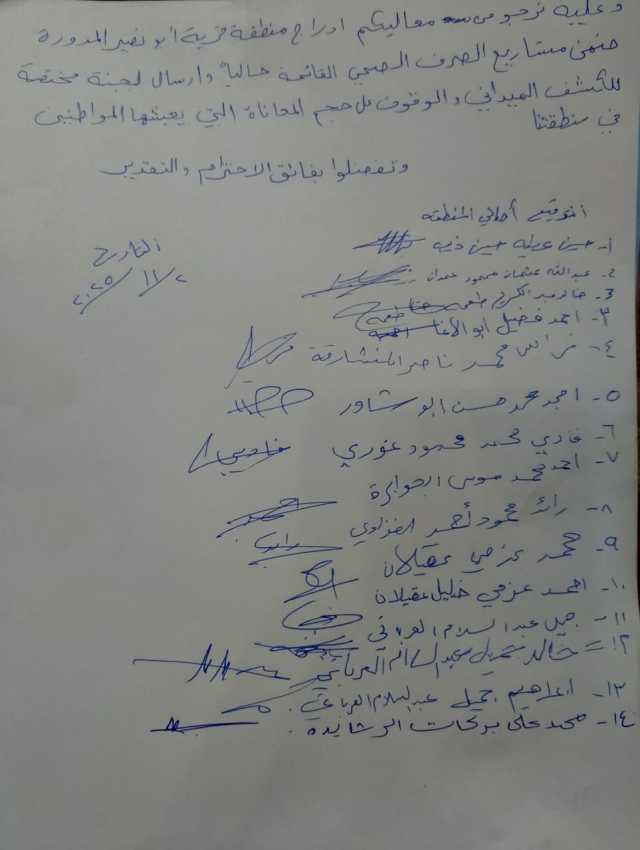 وعليه نرجو من معاليكم ادراج منطقة قرية ابو نصير المدورة
ضمن مشاريع الصرف الصحي القائمة حالياً وارسال لجنة مختصة
للكشف الميداني والوقوف على حجم المعاناة التي يعيشها المواطنين
في منطقتنا
وتفضلوا بفائق الاحترام والتقدير
التوقيع أهالي المنطقة
التاريخ
٢٠٢٥/١١/٢
١- حسن عطيه حسن ذيب
٢- عبدالله عثمان محمود حمدان
٣- طعمه
٣- احمد فضيل ابو الاغا
٤- فراس محمد ناصر المشارقة
٥- امجد محمد حسن ابو شاور
٦- فادي محمد محمود غوري
٧- احمد محمد موسى الجوابرة
٨- رائد محمود أحمد الغزاوي
٩- محمد عزمي عقيلان
١٠- احمد عزمي خليل عقيلان
١١- جميل عبد السلام العرباتي
١٢= خالد جميل عبدالسلام العرباتي
١٣- ابراهيم جميل عبدالسلام العرباتي
١٤- محمد علي بركات الرشايده